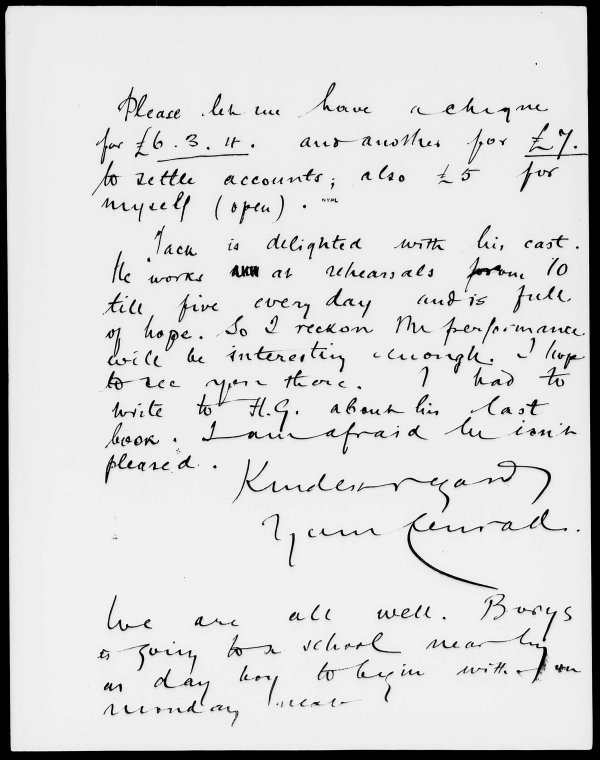 Please let me have a cheque
for £6.3.11. and another for £7.
to settle accounts; also £5 for
myself (open). NYPL
Jack is delighted with his cast.
He works at rehearsals from 10
till five every day and is full
of hope. So I reckon the performance
will be interesting enough. I hope
to see you there. I had to
write to H.G. about his last
book. I am afraid he isn't
pleased.
Kindest regards
Yours Conrad.
We are all well. Borys
is going to a school near by
as day boy to begin with on
Monday next